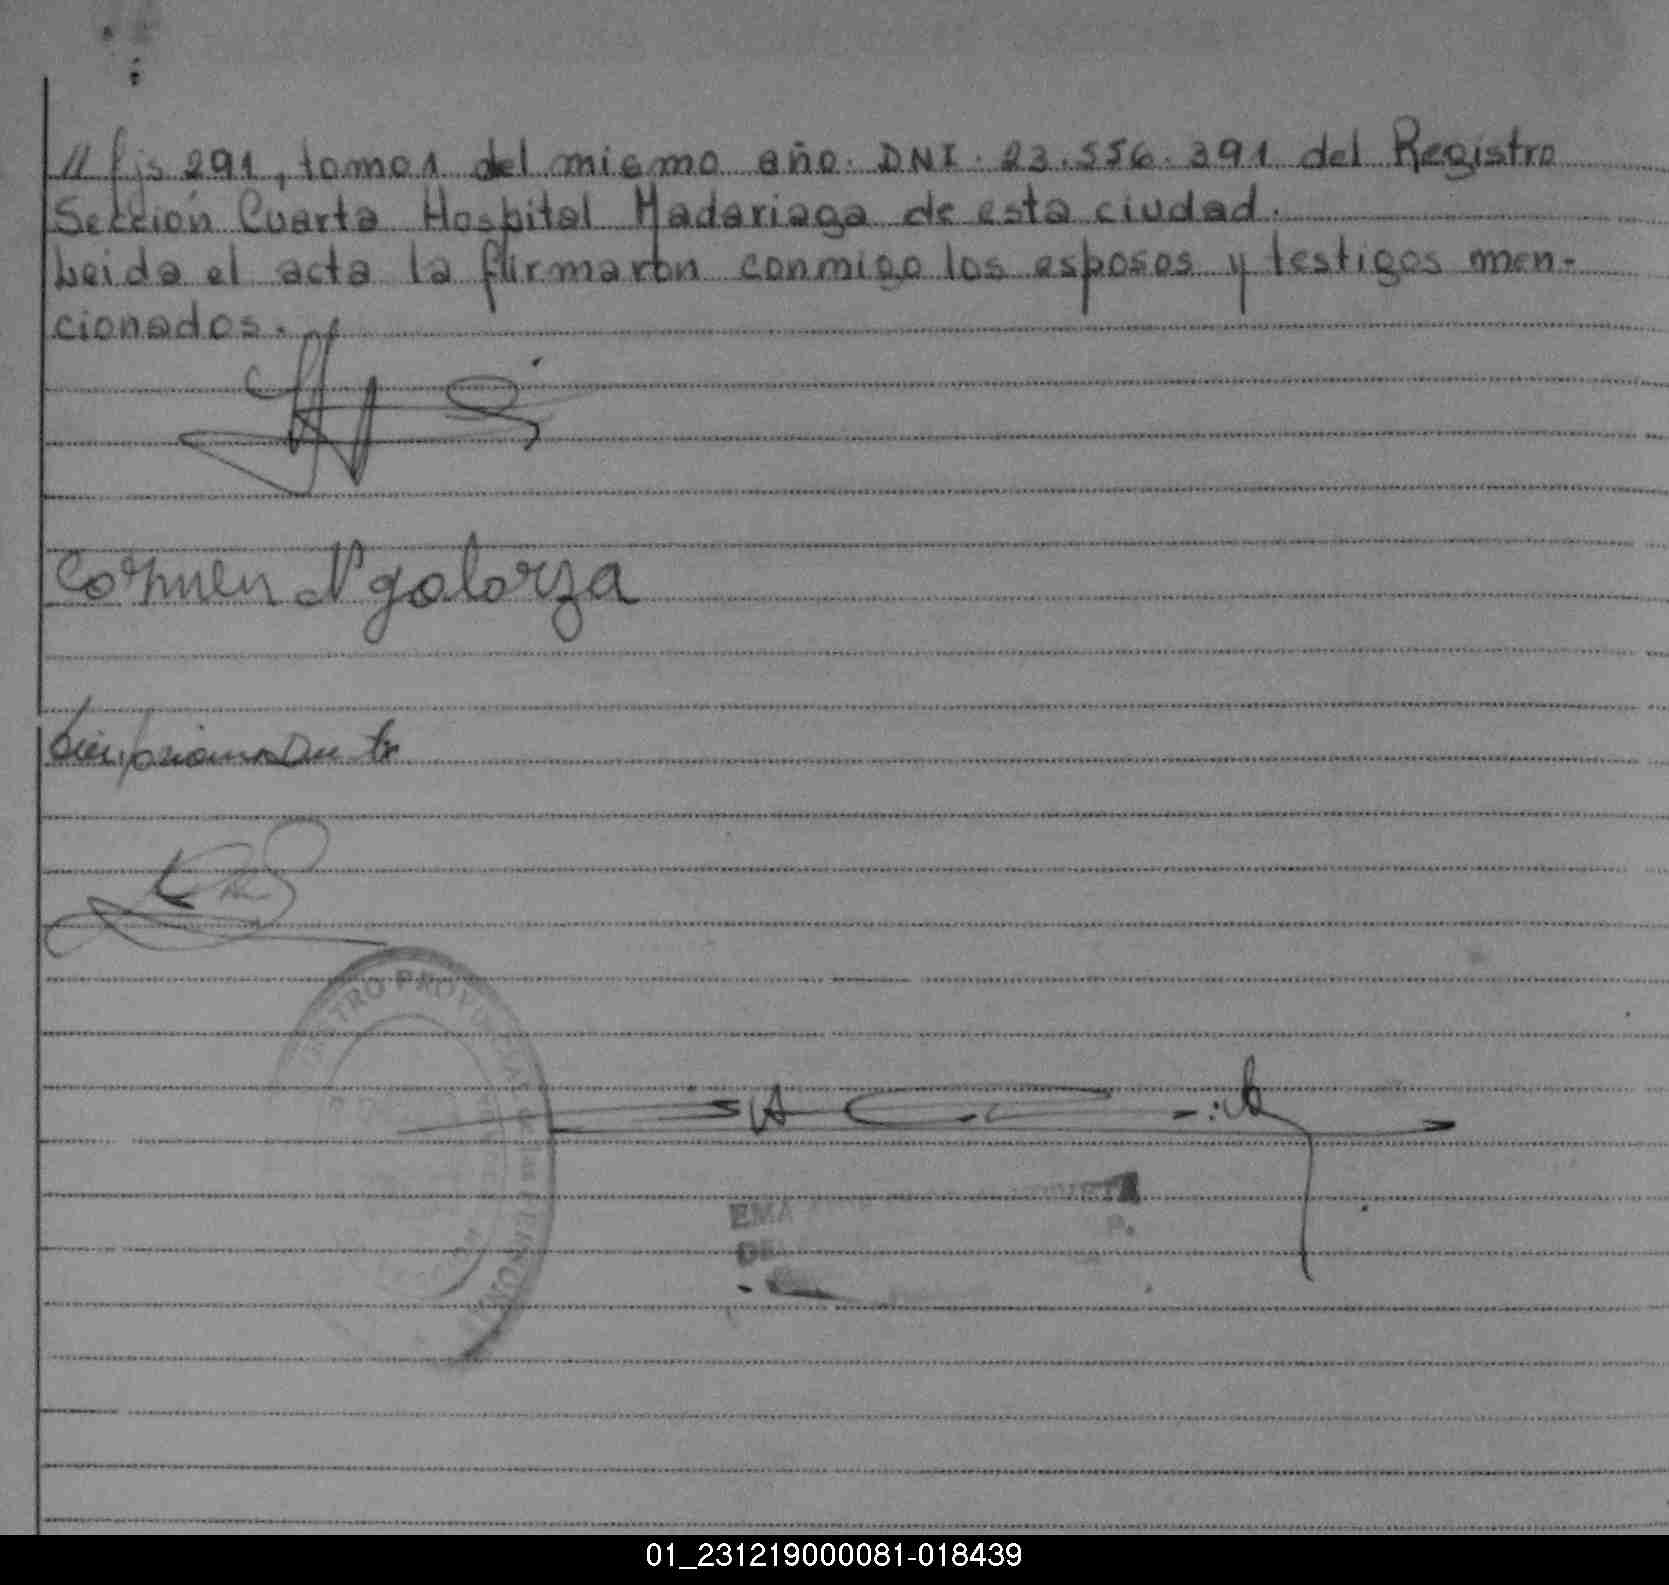 // fjs 291, tomo 1 del mismo año. DNI. 23.556.391 del Registro
Sección Cuarta Hospital Madariaga de esta ciudad.
Leida el acta la firmaron conmigo los esposos y testigos men-
cionados.
Carmen N galarza
REGISTRO PROVINCIAL DE LAS PERSONAS
EMA
DEL
01_231219000081-018439